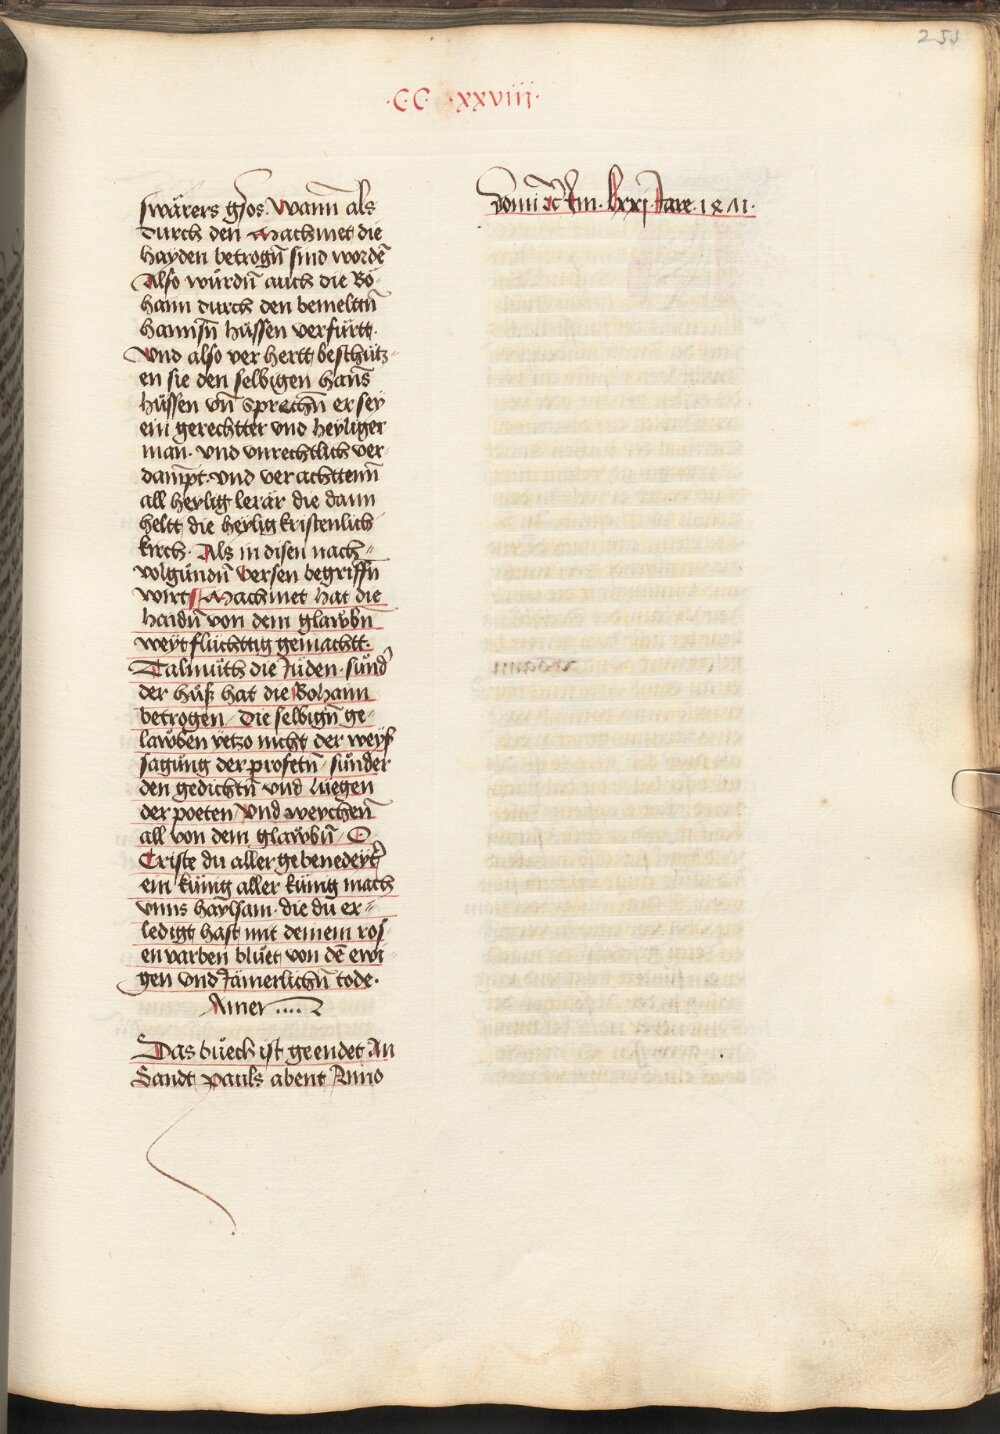 251
·C·C· ·xxviiij·
swärers gros. Wann als
durch den Machmet die
hayden betrogn̄ sind wordē
Also würdn̄ auch die Bo-
hann durch den bemeltn̄
hannsn̄ hüssen verfürtt·
Vnd also ver hertt beschütz=
en sie den selbigen hans
hüssen vn̄ sprechn̄ er sey
ein gerechtter vnd heyliger
man· vnd vnrechtlich ver-
dampt· vnd ver achttenn̄
all heylig lerär die dann
heltt die heylig kristenlich
kirch· Als in disen nach=
volgündn̄ versen begriffn̄
wirt Machmet hat die
haidn̄ von dem glawbn̄
weyt flüchttig gemachtt·
Talmüth die Jüden· sünd'
der hüß hat die Bohann
betrogen/ die selbign̄ ge=
lawben yetzo nicht der weyß
sagüng der profetn̄/ sünder
den gedichtn̄ vnd luegen
der poeten/ vnd weychenn̄
all von dem glawbn̄/ O
Criste du aller gebenedeyt'
ein künig aller künig mach
vnns haylsam· die du er=
ledigt hast mit deinem ros-
en varben bluet von dē ewi-
gen vnd Jämerlichn̄ tode·
Amen
Das büech ist geendet An
Sandt pauls abent Anno
Domini lxxj Jare· 1471·